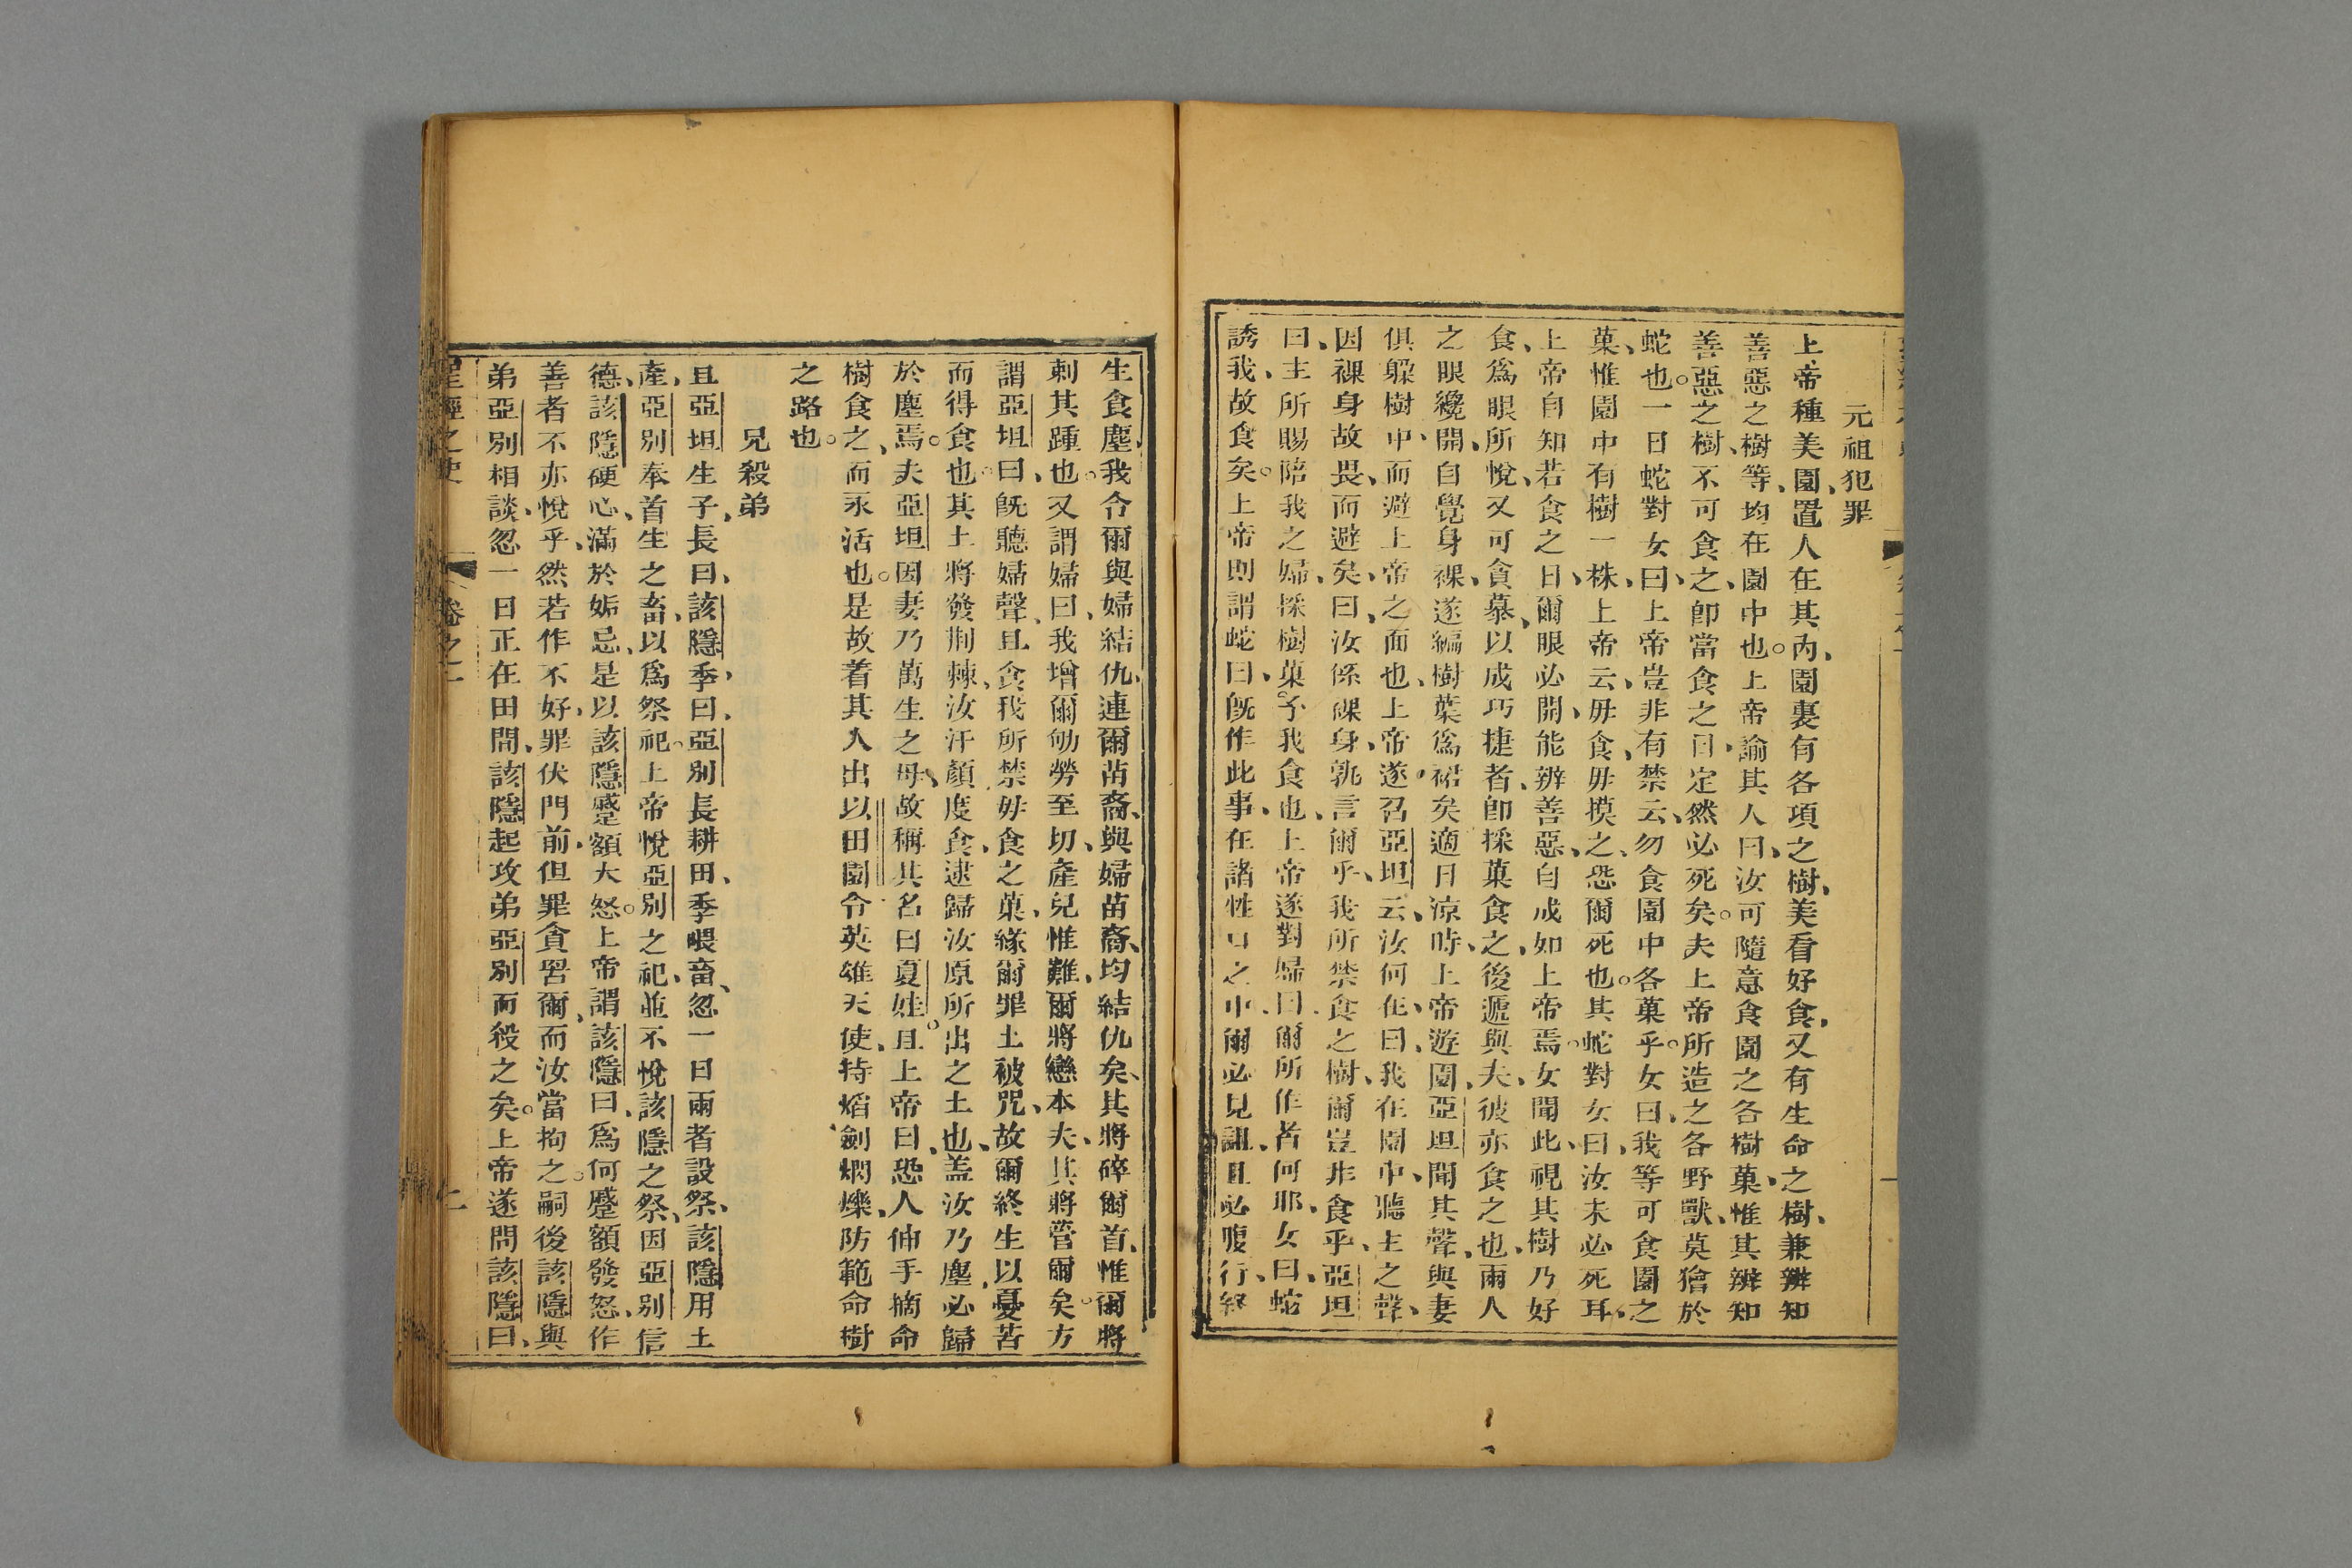 元祖犯罪
上帝種美園、置人在其內、園裏有各項之樹、美看好食、又有生命之樹、兼辨知
善惡之樹等、均在園中也。上帝諭其人曰、汝可隨意食園之各樹菓、惟其辨知
善惡之樹、不可食之、卽當食之日、定然必死矣。夫上帝所造之各野獸、莫獪於
蛇也。一日蛇對女曰、上帝豈非有禁云、勿食園中各菓乎。女曰、我等可食園之
菓、惟園中有樹一株、上帝云、毋食、毋摸之、恐爾死也。其蛇對女曰、汝未必死耳、
上帝自知若食之日、爾眼必開、能辨善惡、自成如上帝焉。女聞此、視其樹乃好
食、爲眼所悅、又可貪慕、以成巧捷者、卽採菓食之、後遞與夫、彼亦食之也、兩人
之眼纔開、自覺身裸、遂編樹葉爲裙矣、適日涼時、上帝遊園、亞坦聞其聲、與妻
俱躱樹中、而避上帝之面也、上帝遂召亞坦云、汝何在、曰、我在園中、聽主之聲、
因裸身故畏、而避矣、曰、汝係裸身、孰言爾乎、我所禁食之樹、爾豈非食乎、亞坦
曰、主所賜陪我之婦、採樹菓予我食也、上帝遂對婦曰、爾所作者何耶、女曰、蛇
誘我、故食矣。上帝則謂蛇曰、旣作此事、在諸牲口之中、爾必見詛、且必腹行、終
生食塵、我令爾與婦結仇、連爾苗裔、與婦苗裔、均結仇矣、其將碎爾首、惟爾將
刺其踵也。又謂婦曰、我增爾劬勞至切、產兒惟難、爾將戀本夫、其將管爾矣。方
謂亞坦曰、旣聽婦聲、且食我所禁毋食之菓、緣爾罪土被咒、故爾終生以憂苦
而得食也。其土將發荆棘、汝汗顏度食、逮歸汝原所出之土也、盖汝乃塵、必歸
於塵焉。夫亞坦因妻乃萬生之母、故稱其名曰夏娃。且上帝曰、恐人伸手摘命
樹食之、而永活也。是故着其人出以田園、令英雄天使、持焰劍爛爍、防範命樹
之路也。
兄殺弟
且亞坦生子、長曰、該隱、季曰、亞別、長耕田、季喂畜、忽一日兩者設祭、該隱用土
產、亞別奉首生之畜、以爲祭祀。上帝悅亞別之祀、並不悅該隱之祭、因亞別信
德、該隱硬心、滿於妬忌、是以該隱蹙額大怒。上帝謂該隱曰、爲何蹙額發怒、作
善者不亦悅乎、然若作不好、罪伏門前、但罪貪習爾、而汝當拘之。嗣後該隱與
弟亞別相談、忽一日正在田間、該隱起攻弟亞別而殺之矣。上帝遂問該隱曰、
聖經之史　卷之一　二